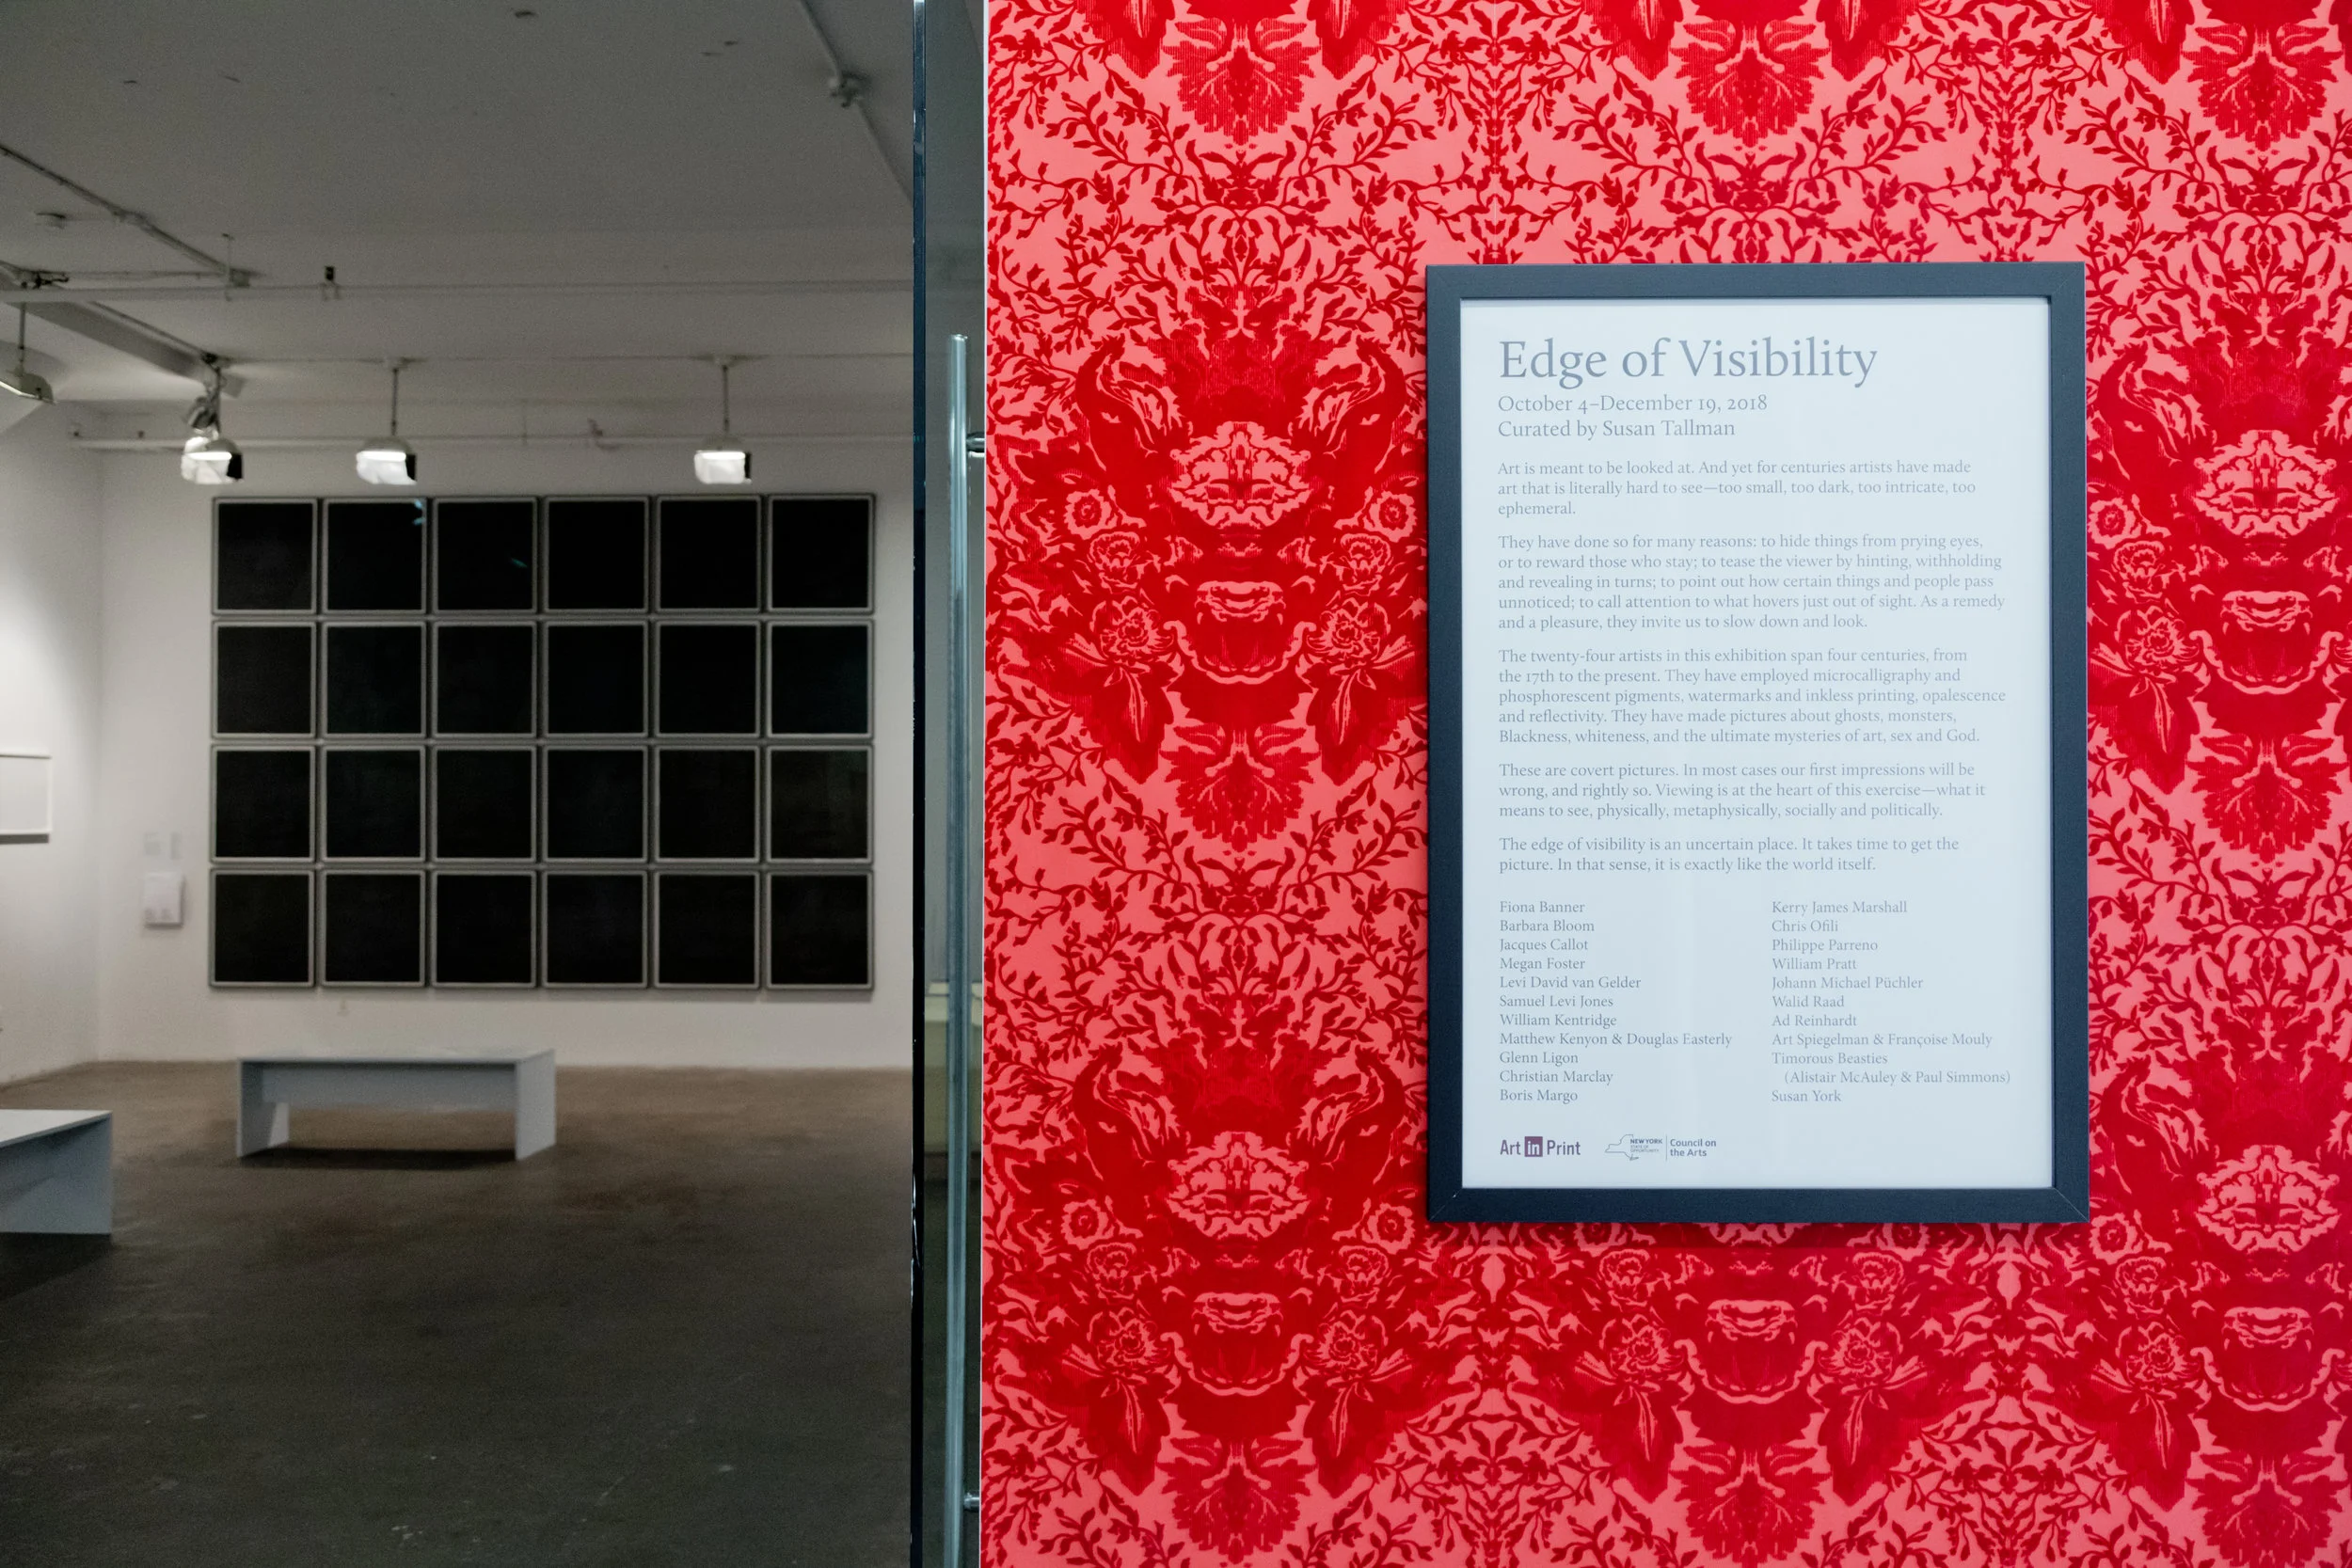 Edge of Visibility
October 4–December 19, 2018
Curated by Susan Tallman
Art is meant to be looked at. And yet for centuries artists have made
art that is literally hard to see—too small, too dark, too intricate, too
ephemeral.
They have done so for many reasons: to hide things from prying eyes,
or to reward those who stay; to tease the viewer by hinting, withholding
and revealing in turns; to point out how certain things and people pass
unnoticed; to call attention to what hovers just out of sight. As a remedy
and a pleasure, they invite us to slow down and look.
The twenty-four artists in this exhibition span four centuries, from
the 17th to the present. They have employed microcalligraphy and
phosphorescent pigments, watermarks and inkless printing, opalescence
and reflectivity. They have made pictures about ghosts, monsters,
Blackness, whiteness, and the ultimate mysteries of art, sex and God.
These are covert pictures. In most cases our first impressions will be
wrong, and rightly so. Viewing is at the heart of this exercise—what it
means to see, physically, metaphysically, socially and politically.
The edge of visibility is an uncertain place. It takes time to get the
picture. In that sense, it is exactly like the world itself.
Fiona Banner
Barbara Bloom
Jacques Callot
Megan Foster
Levi David van Gelder
Samuel Levi Jones
William Kentridge
Matthew Kenyon & Douglas Easterly
Glenn Ligon
Christian Marclay
Boris Margo
Kerry James Marshall
Chris Ofili
Philippe Parreno
William Pratt
Johann Michael Püchler
Walid Raad
Ad Reinhardt
Art Spiegelman & Françoise Mouly
Timorous Beasties
(Alistair McAuley & Paul Simmons)
Susan York
Art in Print
NEW YORK
STATE OF
OPPORTUNITY
Council on
the Arts